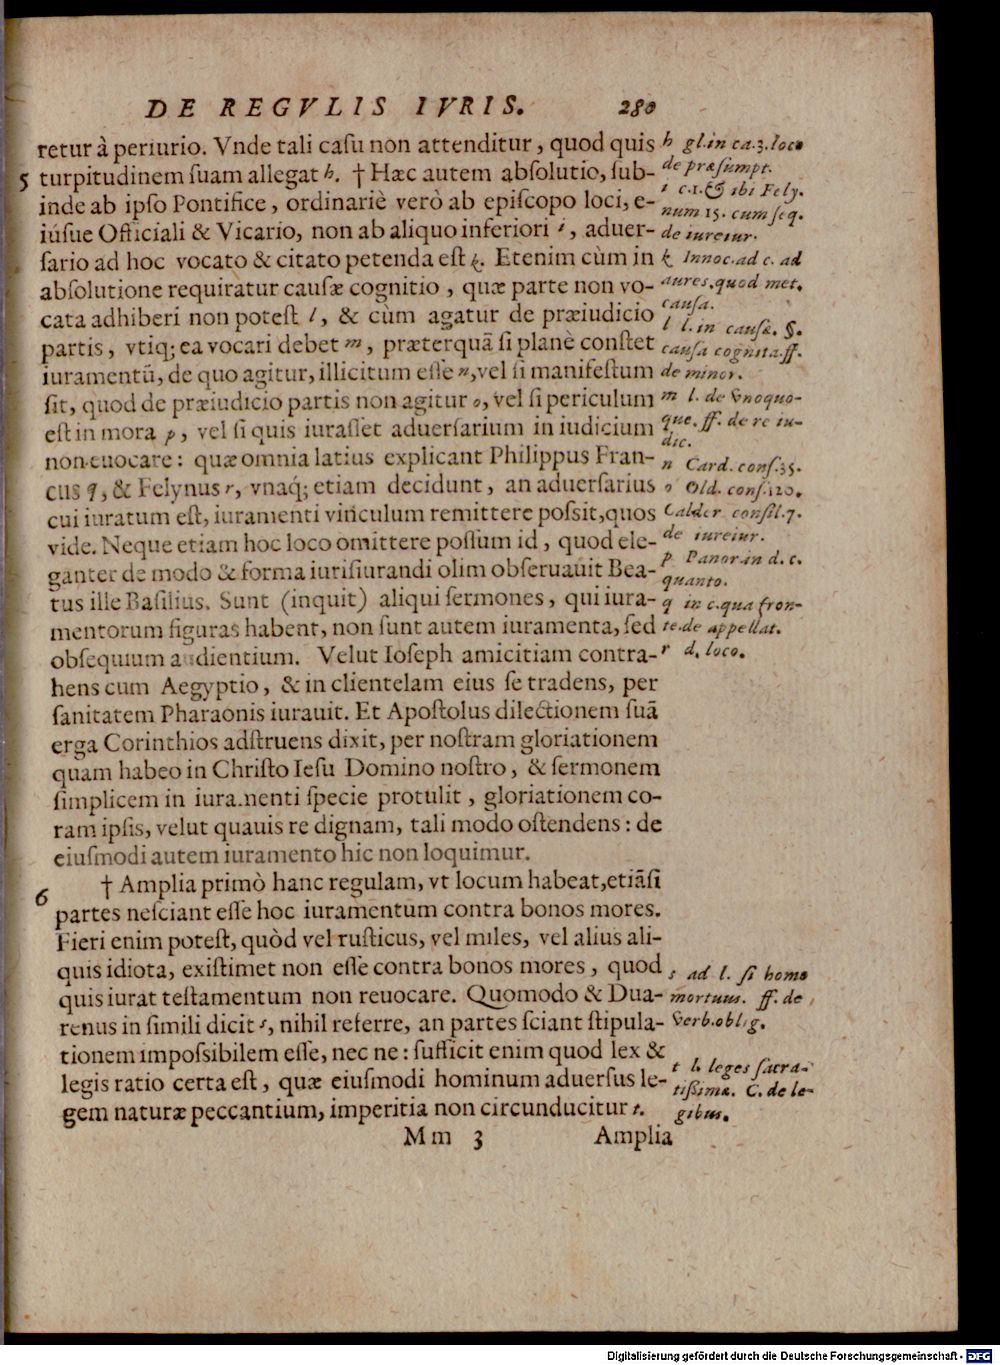 DE REGVLIS IVRIS. 280
retur à periurio. Vnde tali casu non attenditur, quod quis
5 turpitudinem suam allegat h. † Hæc autem absolutio, sub-
inde ab ipso Pontifice, ordinariè verò ab episcopo loci, e-
iúsue Officiali & Vicario, non ab aliquo inferiori i, aduer-
sario ad hoc vocato & citato petenda est k. Etenim cùm in
absolutione requiratur causæ cognitio, quæ parte non vo-
cata adhiberi non potest l, & cùm agatur de præiudicio
partis, vtiq; ea vocari debet m, præterquã si planè constet
iuramentũ, de quo agitur, illicitum esse n, vel si manifestum
sit, quod de præiudicio partis non agitur o, vel si periculum
est in mora p, vel si quis iurasset aduersarium in iudicium
non euocare: quæ omnia latius explicant Philippus Fran-
cus q, & Felynus r, vnaq́; etiam decidunt, an aduersarius
cui iuratum est, iuramenti vinculum remittere possit, quos
vide. Neque etiam hoc loco omittere possum id, quod ele-
ganter de modo & forma iurisiurandi olim obseruauit Bea-
tus ille Basilius. Sunt (inquit) aliqui sermones, qui iura-
mentorum figuras habent, non sunt autem iuramenta, sed
obsequium audientium. Velut Ioseph amicitiam contra-
hens cum Aegyptio, & in clientelam eius se tradens, per
sanitatem Pharaonis iurauit. Et Apostolus dilectionem suã
erga Corinthios adstruens dixit, per nostram gloriationem
quam habeo in Christo Iesu Domino nostro, & sermonem
simplicem in iuramenti specie protulit, gloriationem co-
ram ipsis, velut quauis re dignam, tali modo ostendens: de
eiusmodi autem iuramento hic non loquimur.
6 † Amplia primò hanc regulam, vt locum habeat, etiãsi
partes nesciant esse hoc iuramentum contra bonos mores.
Fieri enim potest, quòd vel rusticus, vel miles, vel alius ali-
quis idiota, existimet non esse contra bonos mores, quod
quis iurat testamentum non reuocare. Quomodo & Dua-
renus in simili dicit s, nihil referre, an partes sciant stipula-
tionem impossibilem esse, nec ne: sufficit enim quod lex &
legis ratio certa est, quæ eiusmodi hominum aduersus le-
gem naturæ peccantium, imperitia non circunducitur t.
Mm 3 Amplia
h gl. in ca. 3. loco
de præsumpt.
i c. 1. & ibi Fely.
num 15. cum seq.
de iureiur.
k Innoc. ad c. ad
aures. quod met.
causa.
l l. in causæ. §.
causa cognita. ff.
de minor.
m l. de Vnoquo-
que. ff. de re iu-
dic.
n Card. cons. 35.
o Old. cons. 120.
Calder consil. 7.
de iureiur.
p Panor. in d. c.
quanto.
q in c. qua fron-
te. de appellat.
r d. loco.
s ad l. si homo
mortuus. ff. de
Verb. oblig.
t l. leges sacra-
tissimæ. C. de le-
gibus.
Digitalisierung gefördert durch die Deutsche Forschungsgemeinschaft - DFG